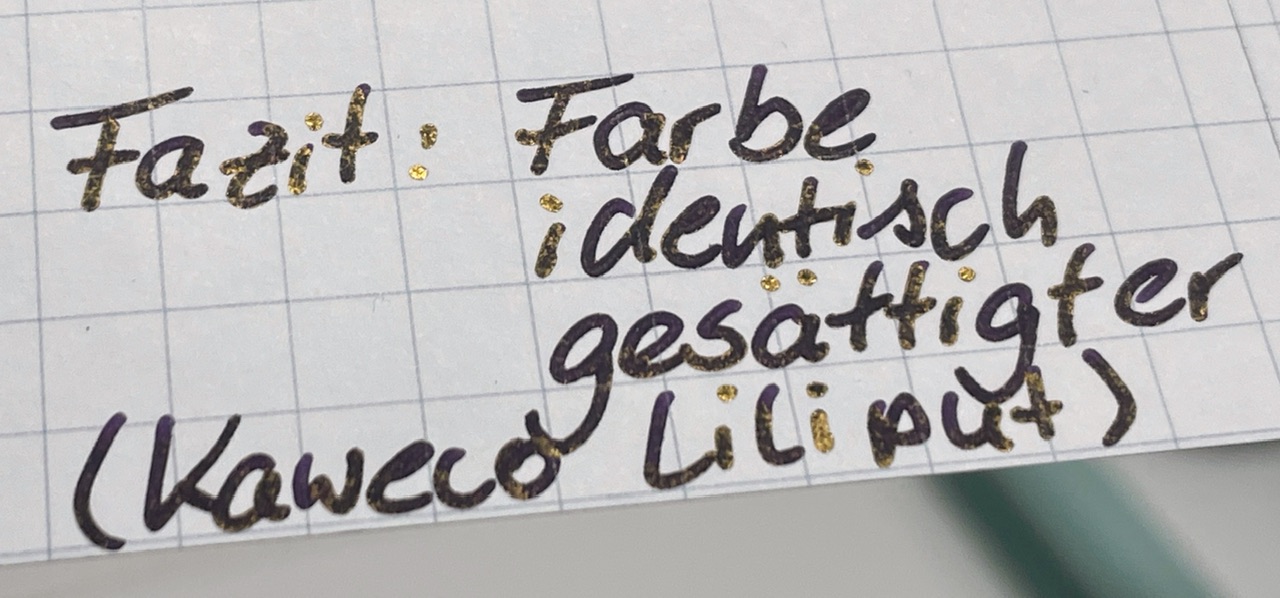 Fazit: Farbe
identisch
gesättigter
(Kaweco Liliput)